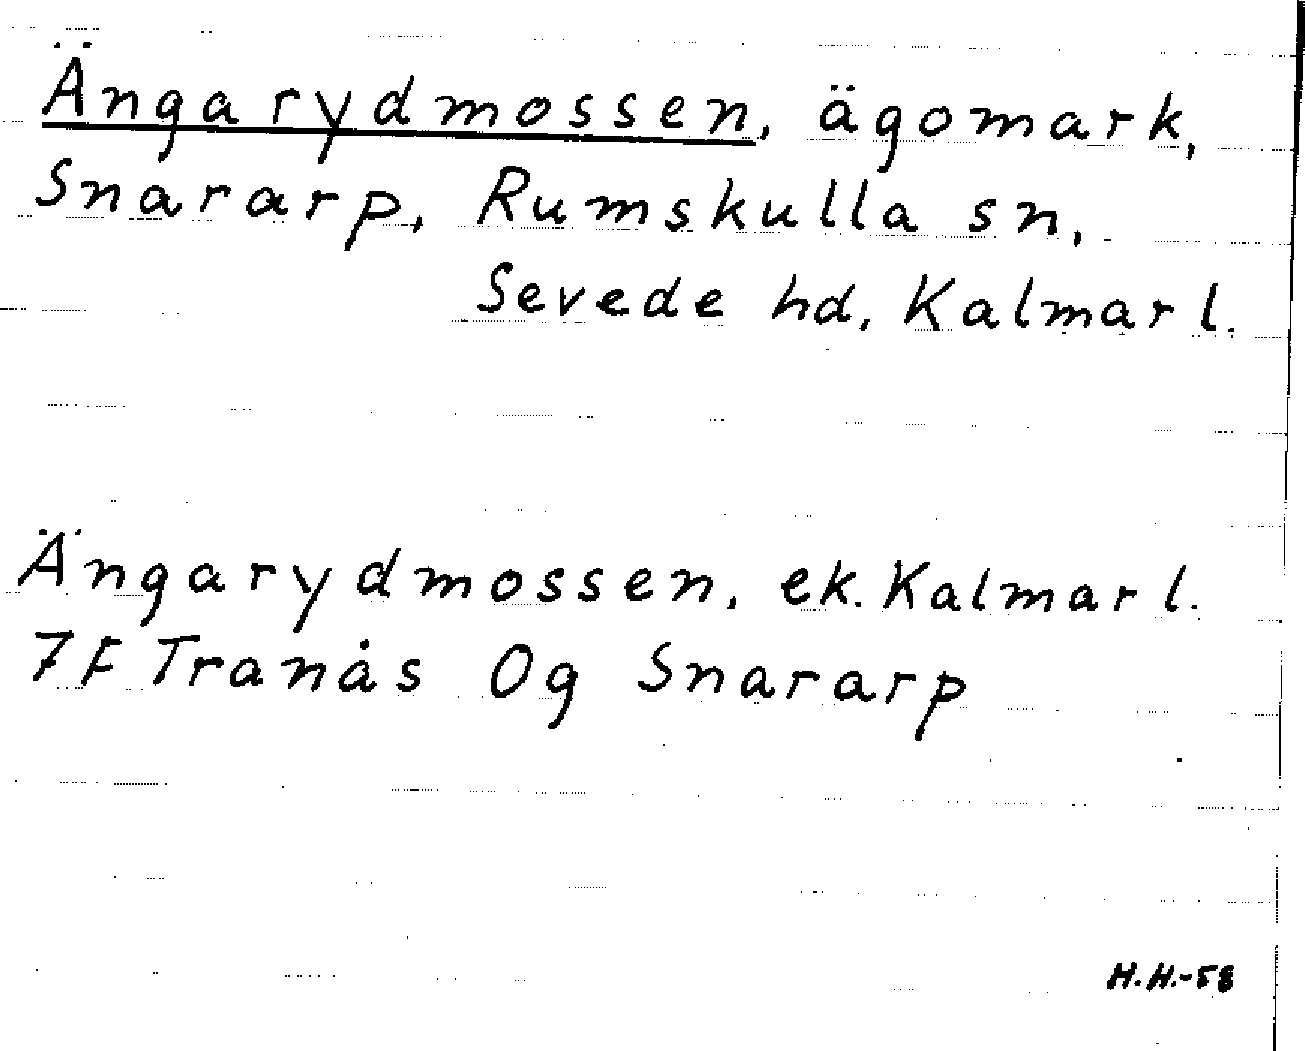 Ängarydmossen, ägomark,
Snararp, Rumskulla sn,
Sevede hd, Kalmar l.
Ängarydmossen, ek. Kalmar l.
7F Tranås 0g Snararp
H.H.-58